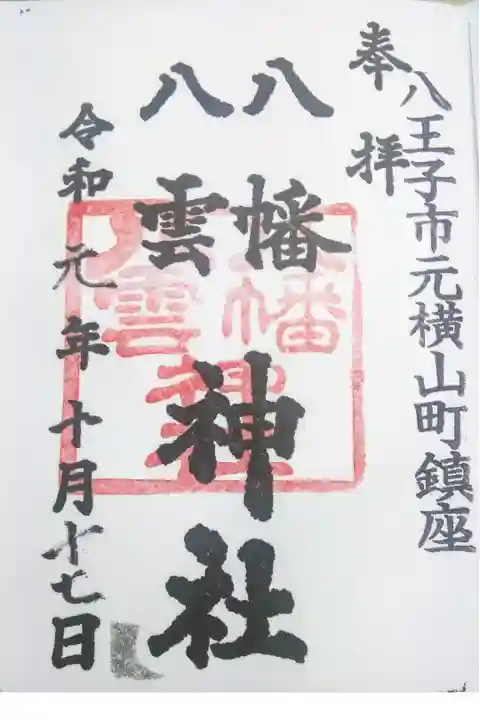 奉拝
八王子市元横山町鎮座
八幡
八雲
神社
令和元年十月十七日
八幡
八雲
神社